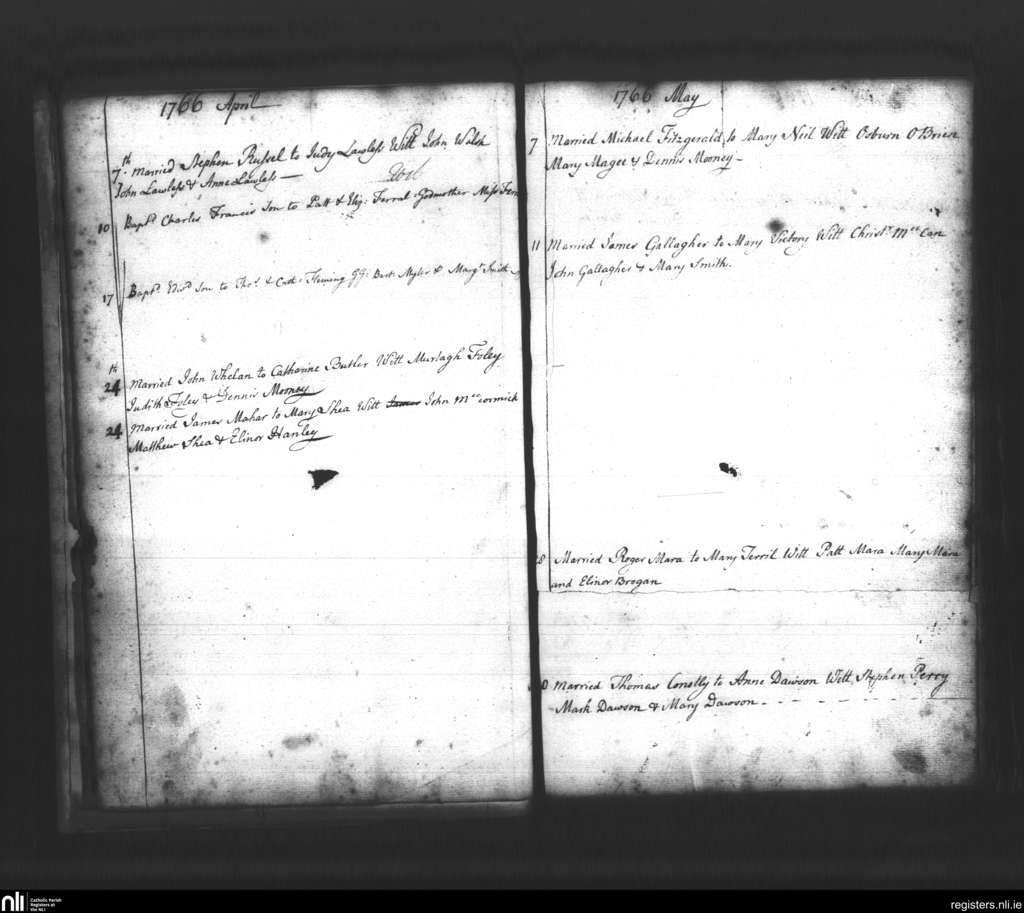 1766 April
7th. Married Stephen Russel to Judy Lawless Witt John Walsh
John Lawless & Anne Lawless —
10 Baptd. Charles Francis Son to Patt & Eliz: Ferral Godmother Miss
17 Baptd. Edwd Son to Thos. & Cath: Fleming GG: Bart: Myler & Margt Smith
24th Married John Whelan to Catharine Butler Witt Murtagh Foley
Judith Foley & Dennis Mooney
24 Married James Mahar to Mary Shea Witt James John Mccormick
Matthew Shea & Elinor Hanley
1766 May
7 Married Michael Fitzgerald to Mary Neil Witt Osburn O'Brien
Mary Magee & Dennis Mooney —
11 Married James Gallagher to Mary Victory Witt Christr. McCan
John Gallagher & Mary Smith.
Married Roger Mara to Mary Terril Witt Patt Mara Mary Mara
and Elinor Brogan
Married Thomas Conolly to Anne Dawson Witt Stephen Perry
Mark Dawson & Mary Dawson - - - - - - -
nli Catholic Parish
Registers at
the NLI
registers.nli.ie